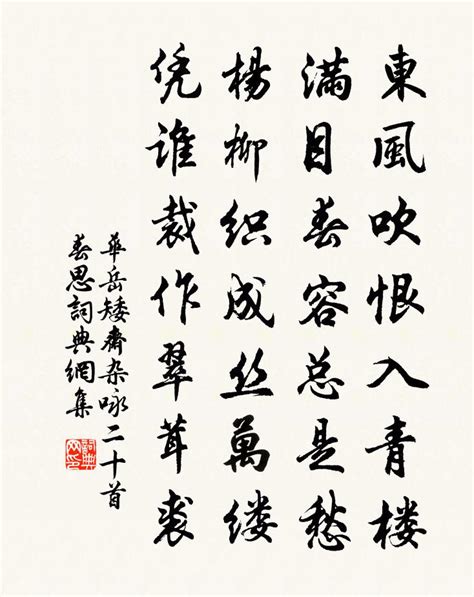 東風吹恨入青楼
滿目春容总是愁
楊柳织成丝萬缕
凭谁裁作翠茸裘
華岳矮齋杂咏二十首
春思詞典網集
詞典网印